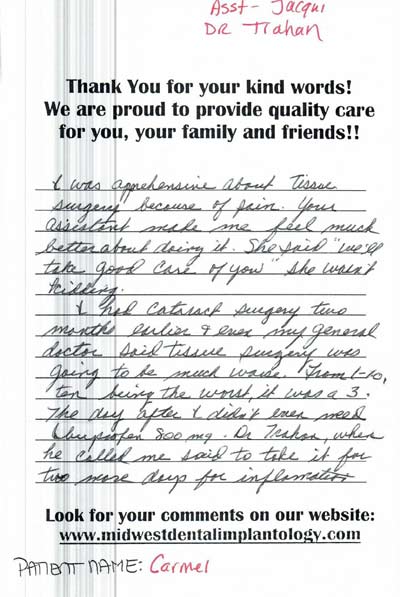 Asst- Jacqui
DR Trahan
Thank You for your kind words!
We are proud to provide quality care
for you, your family and friends!!
I was apprehensive about Tissue
surgery because of pain. Your
assistant made me feel much
better about doing it. She said "we'll
take good care of you" she wasn't
kidding.
I had cataract surgery two
months earlier & even my general
doctor said tissue surgery was
going to be much worse. From 1-10,
ten being the worst, it was a 3.
The day after I didn't even need
Ibuprofen 800 mg. Dr Trahan, when
he called me said to take it for
two more days for inflamation
Look for your comments on our website:
www.midwestdentalimplantology.com
PATIENT NAME: Carmel